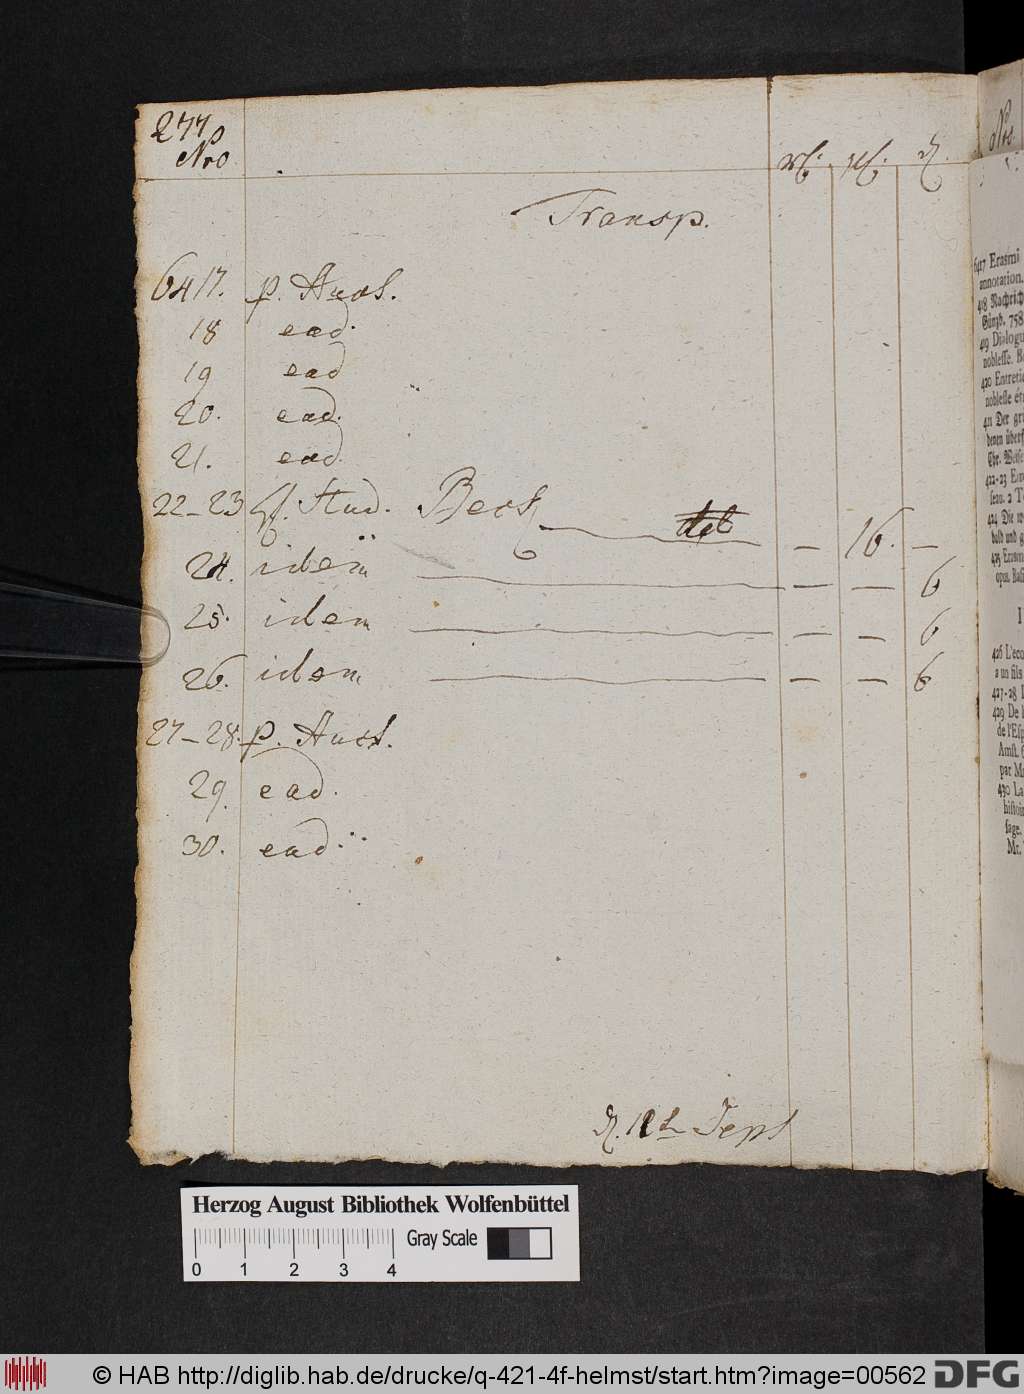 277
Nro
Transp.
6417. p. Auct.
18 ead.
19 ead
20. ead.
21. ead.
22-23 Stud. Beck — 16. —
24. idem — — 6
25. idem — — 6
26. idem — — 6
27-28. p. Auct.
29. ead.
30. ead.
d. 12t Sept
Nro.
6427 Erasmi
annotation.
418 Nachrich
Günzb. 758
419 Dialogu
noblesse. B
420 Entretie
noblesse ét
421 Der gr
denen übers
Chr. Weise
422-23
seau. 2 T
424 Die
bald und g
425 Erasm
opus. Bas
426 L'eco
a un fils
427-28
429 De l
de l'Esp
Amst.
par M
430 La
histoi
sage.
Mr.
Herzog August Bibliothek Wolfenbüttel
Gray Scale
0 1 2 3 4
© HAB http://diglib.hab.de/drucke/q-421-4f-helmst/start.htm?image=00562
DFG